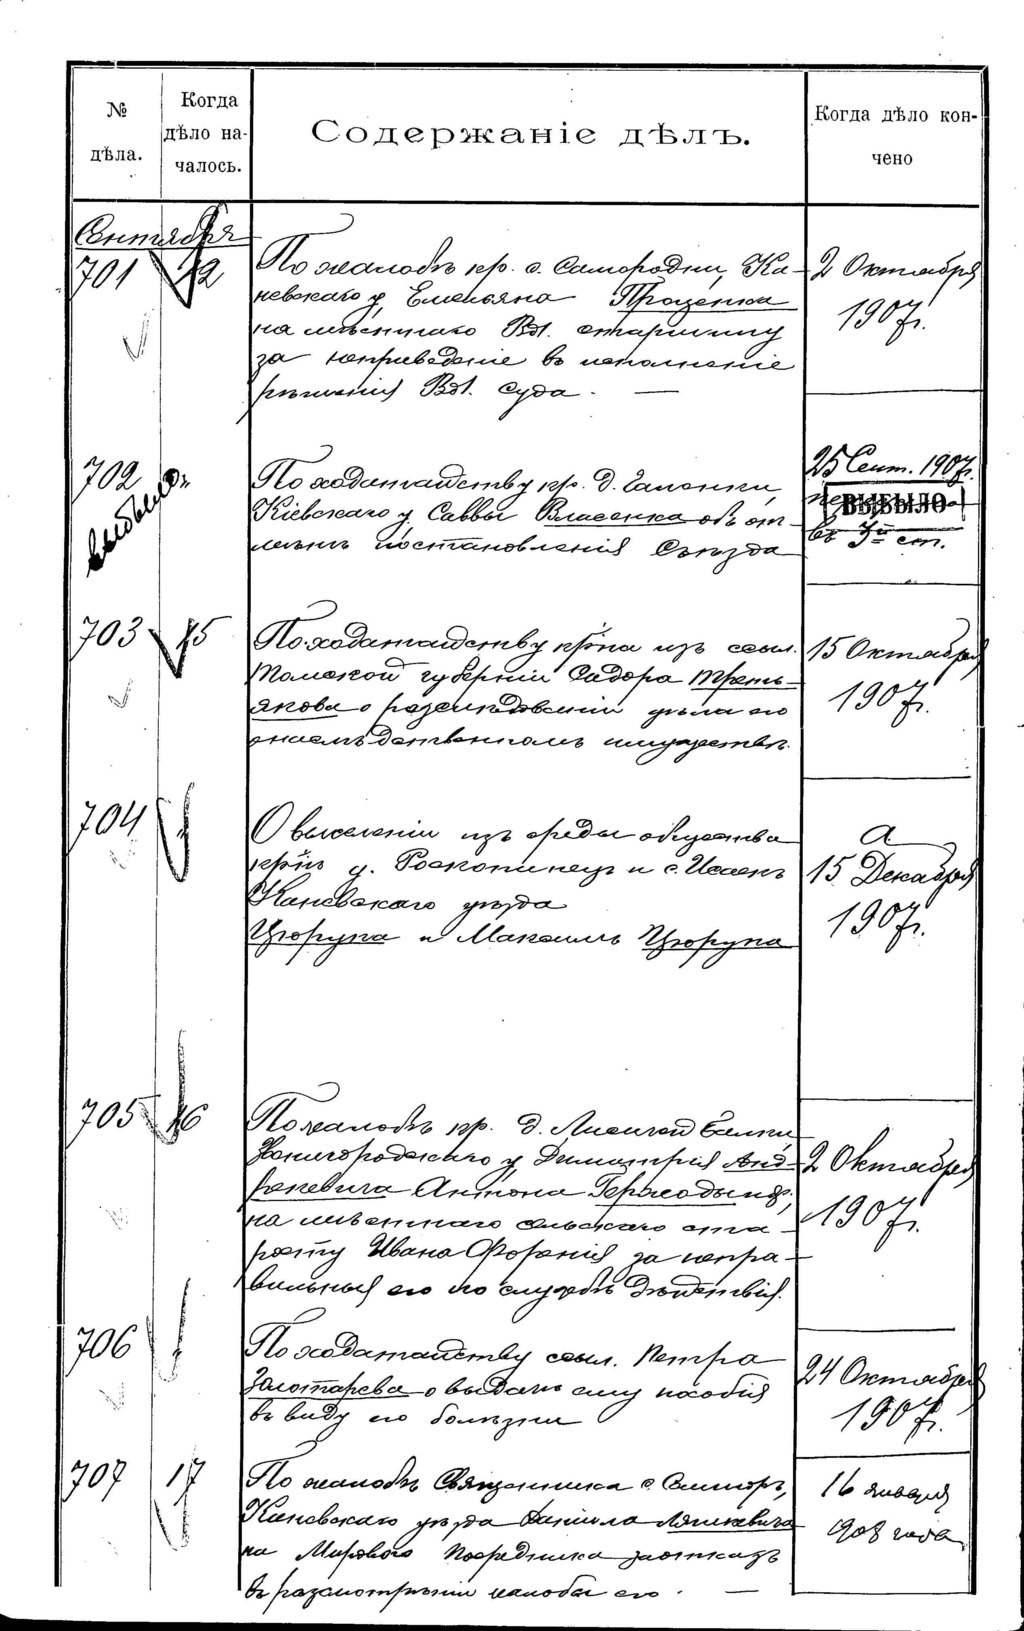 № дѣла.
Когда дѣло на-
чалось.
Содержаніе дѣлъ.
Когда дѣло кон-
чено
Сентября
701 12
По жалобѣ кр. с. Самородни, Ка-
невскаго у. Емельяна Проценка
на мѣстнаго Вол. старшину
за неприведеніе въ исполненіе
рѣшенія Вол. Суда. —
2 Октября
1907 г.
702
выбыло
По ходатайству кр. д.
Кіевскаго у. Саввы Власенка объ от-
мѣнѣ постановленія Съѣзда
25 Сент. 1907 г.
ВЫБЫЛО
въ 3й ст.
703 15
По ходатайству кр-на изъ ссыл.
Томской губерніи Сидора Треть-
якова о разслѣдованіи дѣла его
о наслѣдственномъ имуществѣ.
15 Октября
1907 г.
704
О выселеніи изъ среды общества
кр-нъ д. и с.
Каневскаго уѣзда
Цюрупа и Максимъ Цюрупа
15 Декабря
1907 г.
705 16
По жалобѣ кр. д. Лисичей Балки,
Звенигородскаго у. Димитрія Анд-
Антона
на мѣстнаго сельскаго ста-
росту Ивана за непра-
вильныя его по службѣ дѣйствія.
2 Октября
1907 г.
706
По ходатайству ссыл. Петра
Золотарева о выдачѣ ему пособія
въ виду его болѣзни
24 Октября
1907 г.
707 17
По жалобѣ Священника с.
Каневскаго уѣзда Даніила Ляшкевича
на Мирового Посредника за отказъ
въ разсмотрѣніи жалобы его. —
16 января
1908 года